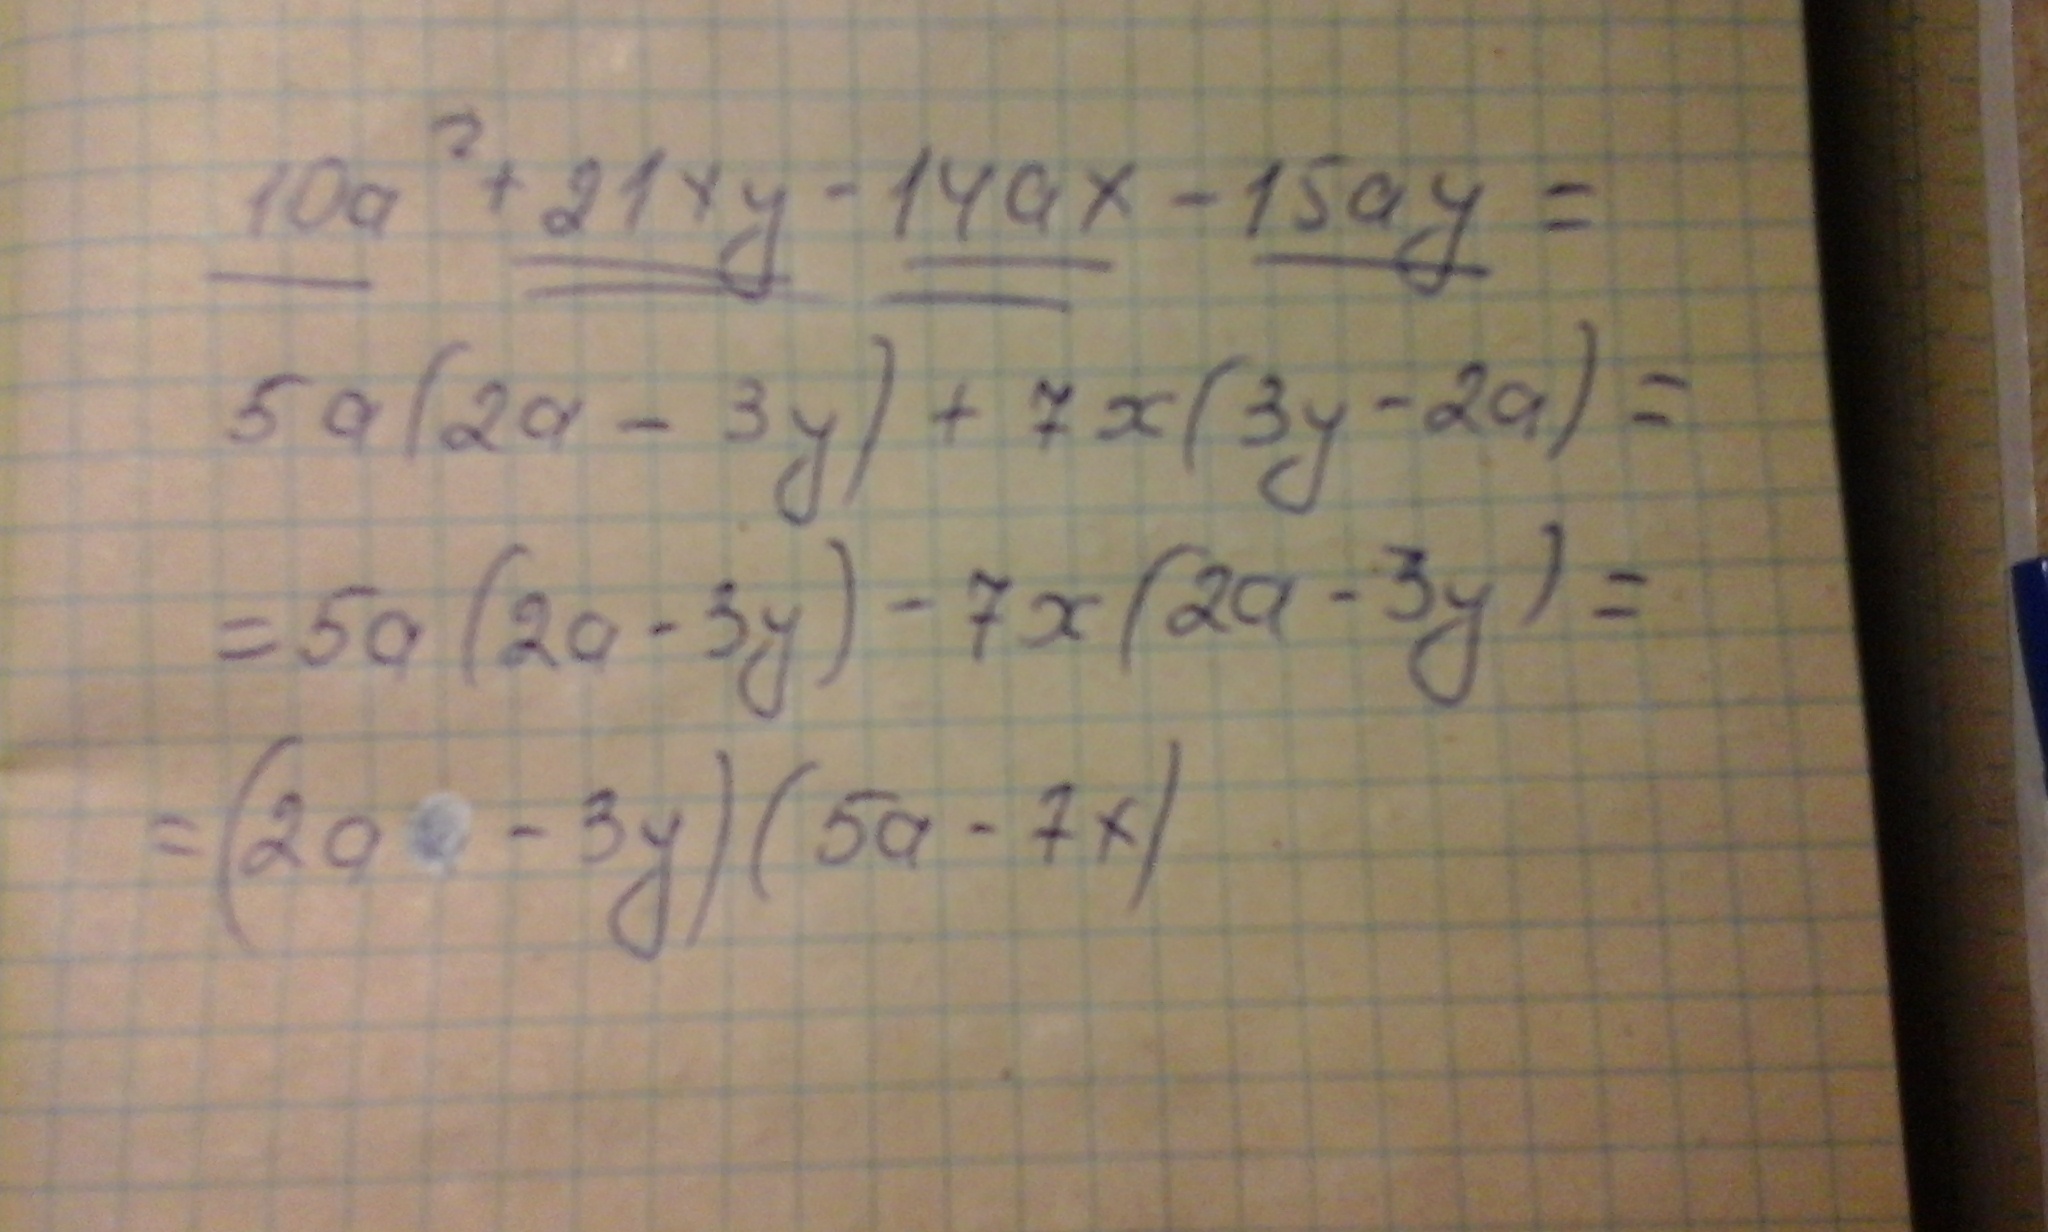 10a² + 21xy - 14ax - 15ay =
5a(2a - 3y) + 7x(3y - 2a) =
= 5a(2a - 3y) - 7x(2a - 3y) =
= (2a - 3y)(5a - 7x)